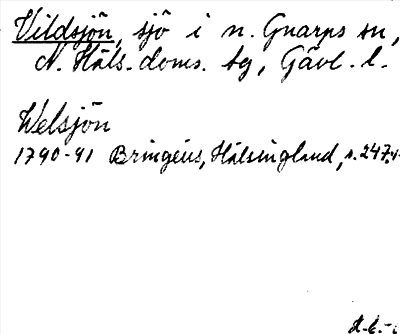 Vildsjön, sjö i n. Gnarps sn,
N. Häls. doms. sg, Gävl. l.
Welsjön
1790-91 Bringéus, Hälsingland, s. 247.